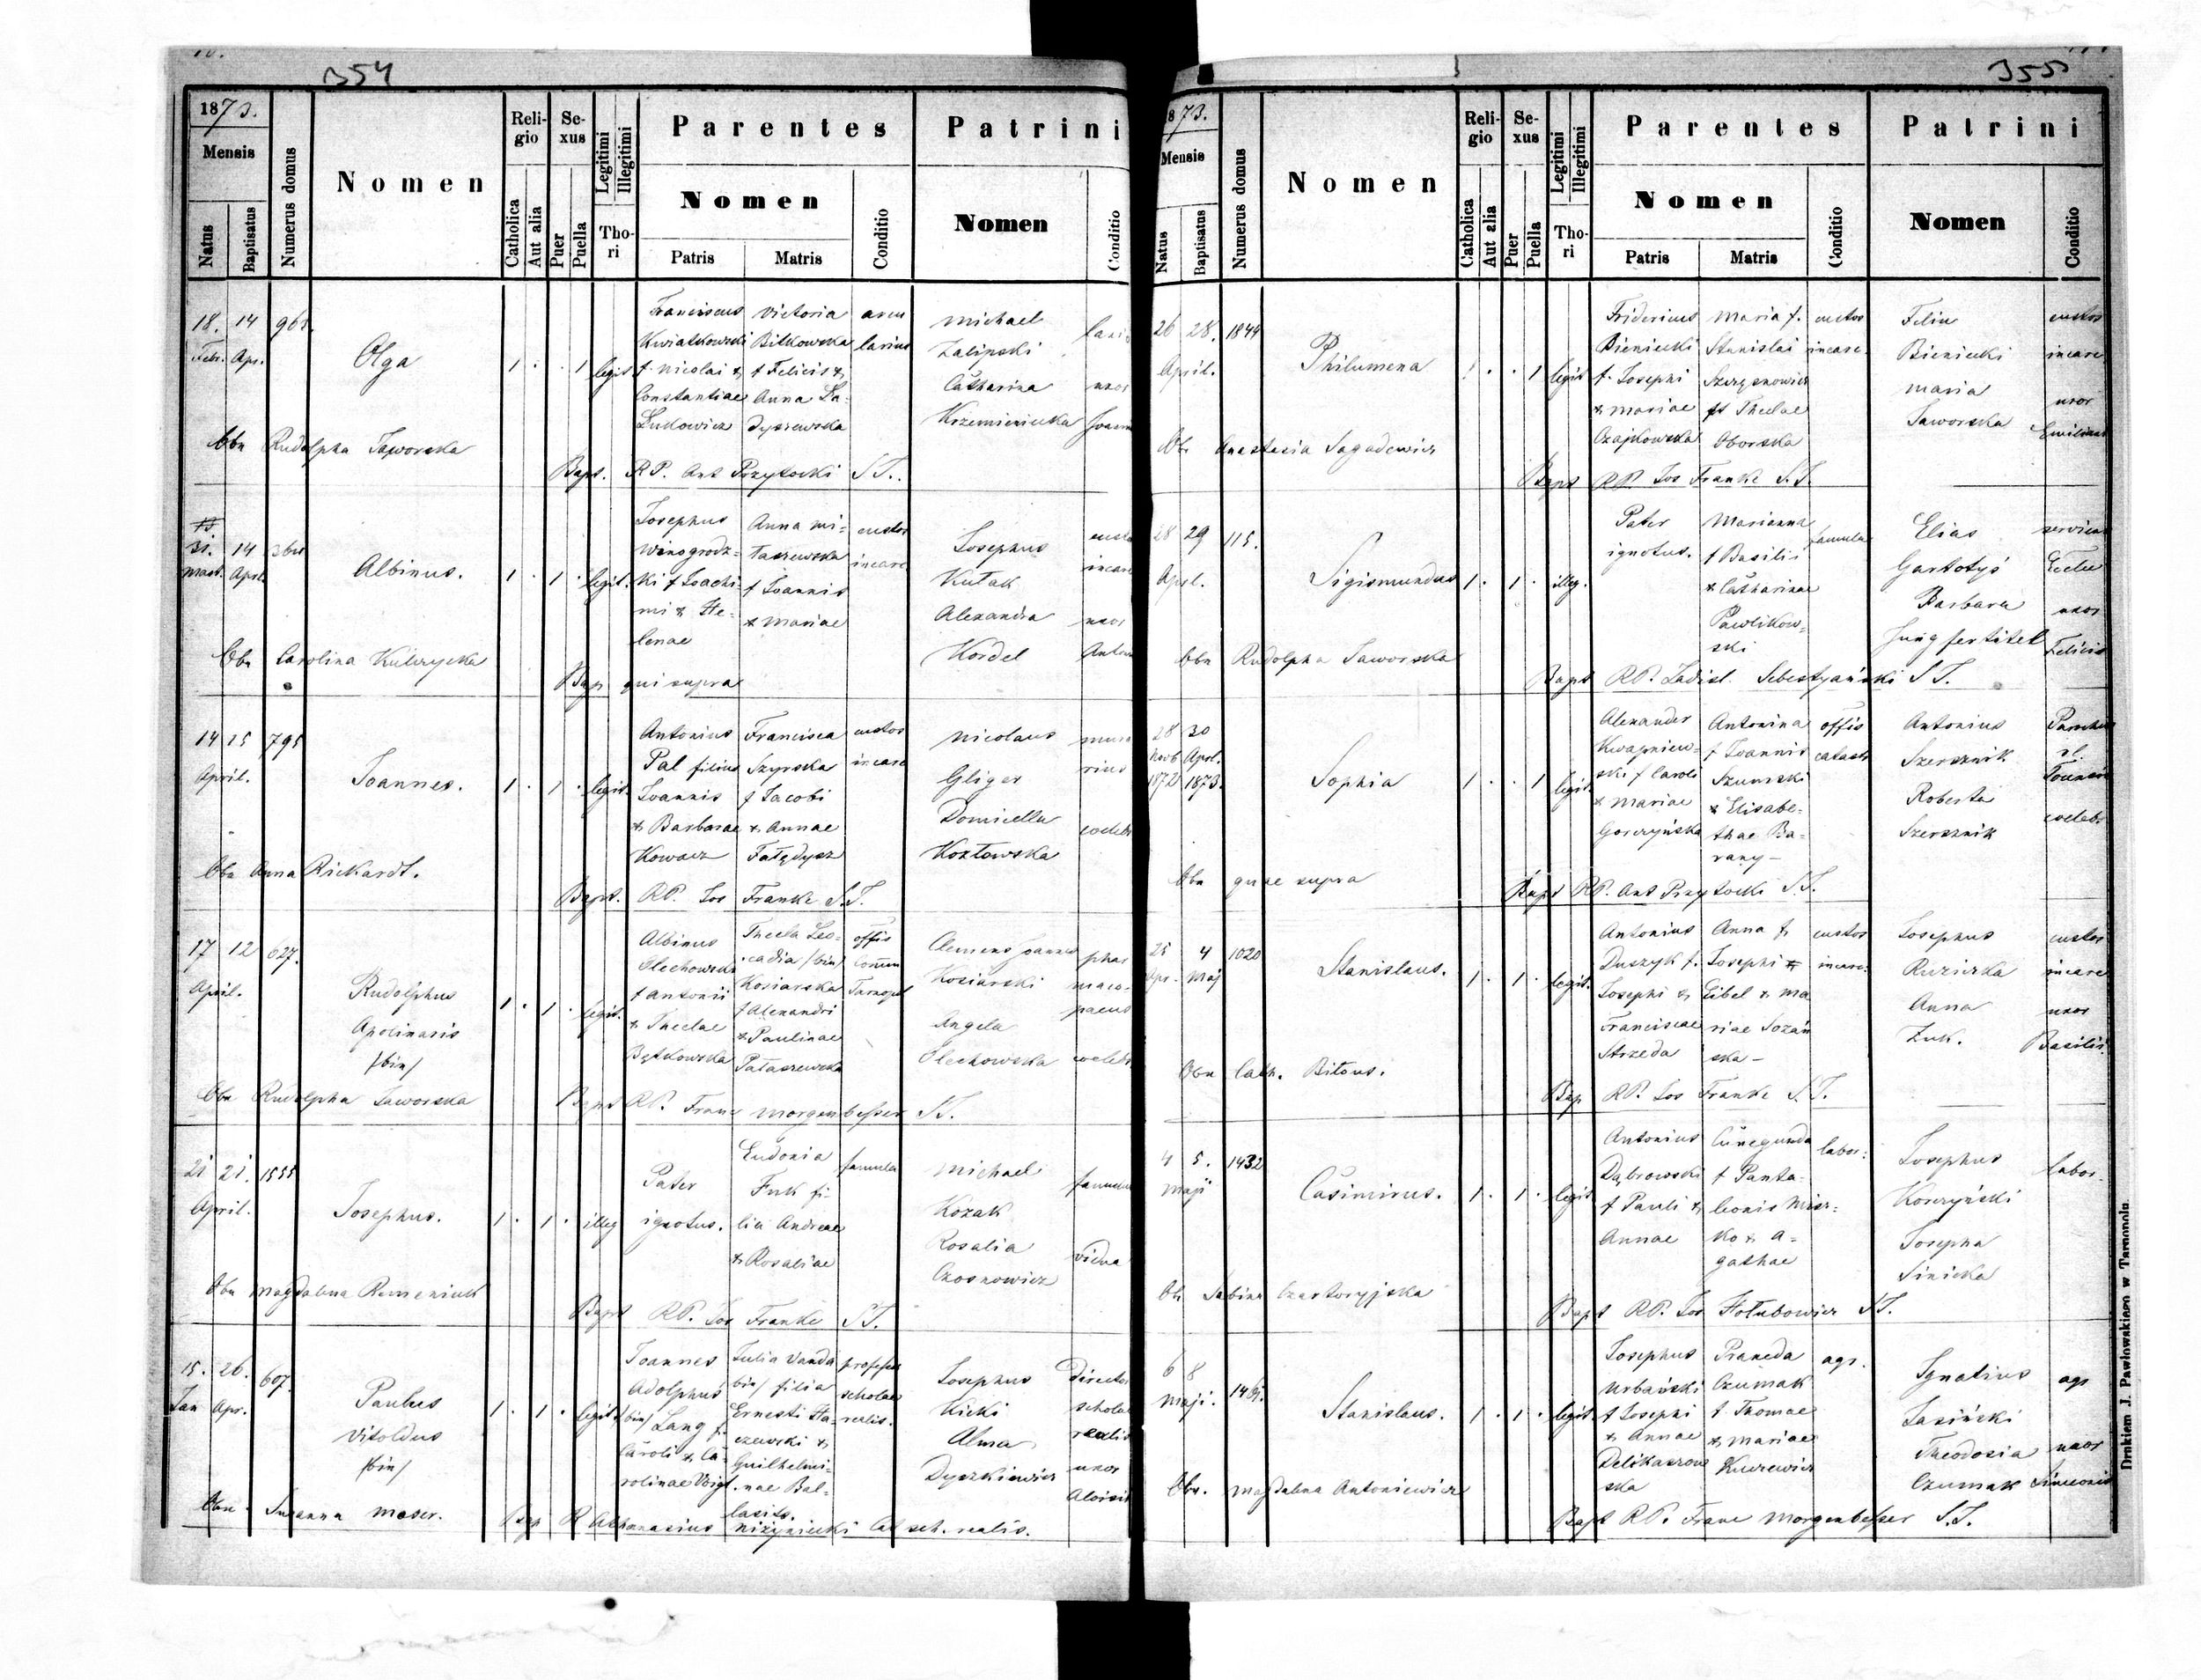 354
1873.
Mensis
Natus
Baptisatus
Numerus domus
Nomen
Religio
Catholica
Aut alia
Sexus
Puer
Puella
Legitimi
Illegitimi
Thori
Parentes
Nomen
Patris
Matris
Conditio
Patrini
Nomen
Conditio
18. 14
Febr. Apr.
Olga
1 . . 1 legit
Franciscus
Kwiatkowski
f. Nicolai &
Constantiae
Lukowicz
Victoria
Bilkowska
f Felicis &
Anna Ła-
dyszewska
Michael
Zalipski
Catharina
Krzemieniecka
uxor
Obn Rudolpha Jaworska
Bapt. RP. Ant Przytocki S.J.
31. 14
Mart. Apr.
Albinus.
1 . 1 . legit.
Josephus
Winogrodz-
ki f Joachi-
mi & He-
lenae
Anna Mi-
taszewska
f Joannis
& Mariae
custos
incarc
Josephus
Kułak
Alexandra
Kordel
uxor
Obn Carolina Kulczycka
Bap qui supra
14 15 795
April.
Joannes.
1 . 1 . legit.
Antonius
Pal filius
Joannis
& Barbarae
Kowacz
Francisca
Szyrska
f Jacobi
& Annae
Fałędysz
custos
incarc
Nicolaus
Gliger
Domicella
Kozłowska
coelebs
Obn Anna Rickardt.
Bapt. RP. Jos Franke S.J.
17 12 627.
April.
Rudolphus
Apolinaris
/bin/
1 . 1 . legit.
Albinus
Olechowski
f Antonii
& Theclae
Bętkowska
Thecla Leo-
cadia /bin/
Kosiarska
f Alexandri
& Paulinae
Pataszewska
offis
Comm
Tarnopol
Clemens Joannes
Kosiarski
Angela
Olechowska
phar
maco-
paeus
coelebs
Obn Rudolpha Jaworska
Bapt RP. Franc Morgenbesser S.J.
21 21. 1555
April.
Josephus.
1 . 1 . illeg
Pater
ignotus.
Eudonia
Fuk fi-
lia Andreae
& Rosaliae
famula
Michael
Kozak
Rosalia
Czosnowicz
famulus
vidua
Obn Magdalena Remeniuk
Bapt RP. Jos Franke S.J.
15. 26. 607.
Jan Apr.
Paulus
Vitoldus
/bin/
1 . 1 . legit.
Joannes
Adolphus
/bin/ Lang f.
Caroli & Ca-
rolinae Voigt.
Julia Vanda
bin/ filia
Ernesti Ha-
czewski &
Guilhelmi-
nae Bal-
lasits.
professor
scholae
realis.
Josephus
Kicki
Alma
Dyszkiewicz
Director
scholae
realis
uxor
Aloisii
Obn. Susanna Moser.
Bap R Athanasius Niżyniecki Cat sch. realis.
355
1873.
Mensis
Natus
Baptisatus
Numerus domus
Nomen
Religio
Catholica
Aut alia
Sexus
Puer
Puella
Legitimi
Illegitimi
Thori
Parentes
Nomen
Patris
Matris
Conditio
Patrini
Nomen
Conditio
26 28. 1844
April.
Philumena
1 . . 1 legit
Fridericus
Bieniecki
f. Josephi
& Mariae
Czajkowska
Maria f.
Stanislai
& Theclae
Oborska
custos
incarc.
Bieniecki
Maria
Jaworska
custos
incarc
uxor
Emiliani
Obn Anastasia Sagadewicz
Bapt RP. Jos Franke S.J.
28 29 115.
April.
Sigismundus
1 . 1 . illeg.
Pater
ignotus.
Marianna
f Basilii
& Catharinae
Pawlikow-
ski
famula
Elias
Gartotyś
Barbara
Jungfertitel
uxor
Felicis
Obn Rudolpha Jaworska
Bapt RP. Ladisl. Sebestyański S J.
28 30
Novb Aprl.
1872 1873.
Sophia
1 . . 1 legit.
Alexander
Kwapniew-
ski f Caroli
& Mariae
Gorczyńska
Antonina
f Joannis
Szumski
& Elisabe-
thae Ba-
rany -
offis
catastr
Antonius
Szersznik
Roberta
Szersznik
coelebs
Obn quae supra
Bapt RP. Ant Przytocki S.J.
25 4 1020
Apr. Maj
Stanislaus.
1 . 1 . legit.
Antonius
Duszyk f.
Josephi &
Franciscae
Strzeda
Anna f.
Josephi
Eibel & Ma
riae Sozań
ska -
custos
incarc.
Josephus
Ruzicka
Anna
Żuk.
custos
incarc
uxor
Basilii
Obn Cath. Bitous.
Bap RP. Jos Franke S.J.
4 5. 1432
Maji
Casimirus.
1 . 1 . legit
Antonius
Dąbrowski
f Pauli &
Annae
Cunegunda
f Panta-
leonis Mier-
ko & A-
gathae
labor.
Josephus
Korczyński
Josepha
Sinicka
labor.
Obn Sabina Czartoryjska
Bapt RP. Jos Hołubowicz S.J.
6 8
Maji.
Stanislaus.
1 . 1 . legit.
Josephus
Urbański
f Josephi
& Annae
Delikatrow
ska
Praxeda
Czumak
f. Thomae
& Mariae
Kuczewicz
agr.
Ignatius
Jasiński
Theodosia
Czumak
agr
uxor
Simeonis
Obn. Magdalena Antoniewicz
Bapt RP. Franc Morgenbesser S.J.
Drukiem J. Pawłowskiego w Tarnopolu.